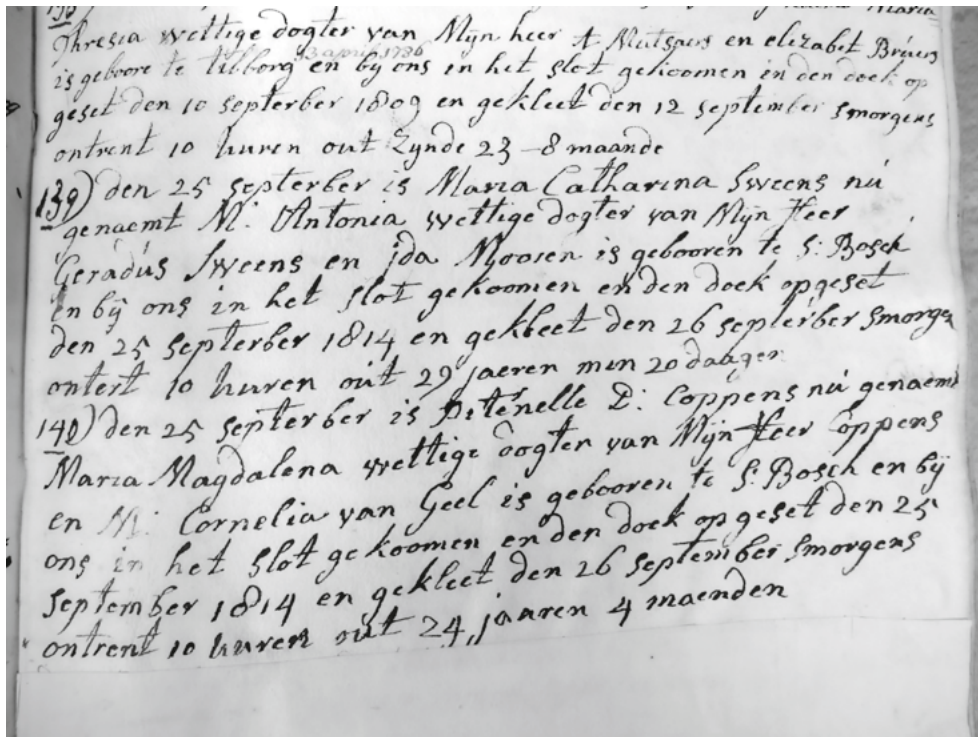 Thresia wettige dogter van Mijn heer A Mutsaers en elizabet
13 april 1786
is geboore te tilborg en bij ons in het slot gekoomen in den doek op
geset den 10 septerber 1809 en gekleet den 12 september smorgens
ontrent 10 huren out Zynde 23 - 8 maande
139) den 25 septerber is Maria Catharina Sweens nú
genaemt M: Antonia wettige dogter van Mijn Heer
Geradús Sweens en jda Moosen is gebooren te S: Bosch
en bij ons in het slot gekoomen en den doek opgeset
den 25 septerber 1814 en gekleet den 26 septerber smorgen
ontert 10 huren oút 29 jaeren min 20 daager
140) den 25 septerber is Peternelle D: Coppens nú genaemt
Maria Magdalena wettige dogter van Mijn Heer Coppens
en M: Cornelia van Geel is gebooren te S: Bosch en bij
ons in het slot gekoomen en den doek op geset den 25
september 1814 en gekleet den 26 september smorgens
ontrent 10 huren out 24 jaaren 4 maenden